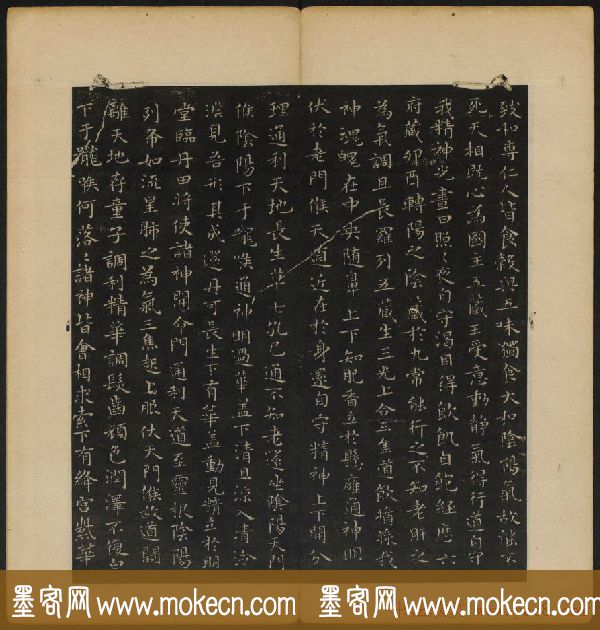 致和專仁人皆食穀與五味獨食大和陰陽氣故能不
死天相既心為國主五藏王受意動靜氣得行道自守
我精神光晝日照照夜自守渴自得飲飢自飽經歷六
府藏卯酉轉陽之陰藏於九常能行之不知老肝之
為氣調且長羅列五藏生三光上合三焦道飲醬漿我
神魂魄在中央隨鼻上下知肥香立於懸雍通神明
伏於老門候天道近在於身還自守精神上下開分
理通利天地長生草七孔已通不知老還坐陰陽天門
候陰陽下于嚨喉通神明過華蓋下清且涼入清泠
淵見吾形其成還丹可長生下有華蓋動見精立於明
堂臨丹田將使諸神開命門通利天道至靈根陰陽
列布如流星肺之為氣三焦起上服伏天門候故道闚
離天地存童子調利精華調髮齒顏色潤澤不復白
下于嚨喉何落落諸神皆會相求索下有絳宮紫華
墨客网 www.mokecn.com 墨客网 www.mokecn.com